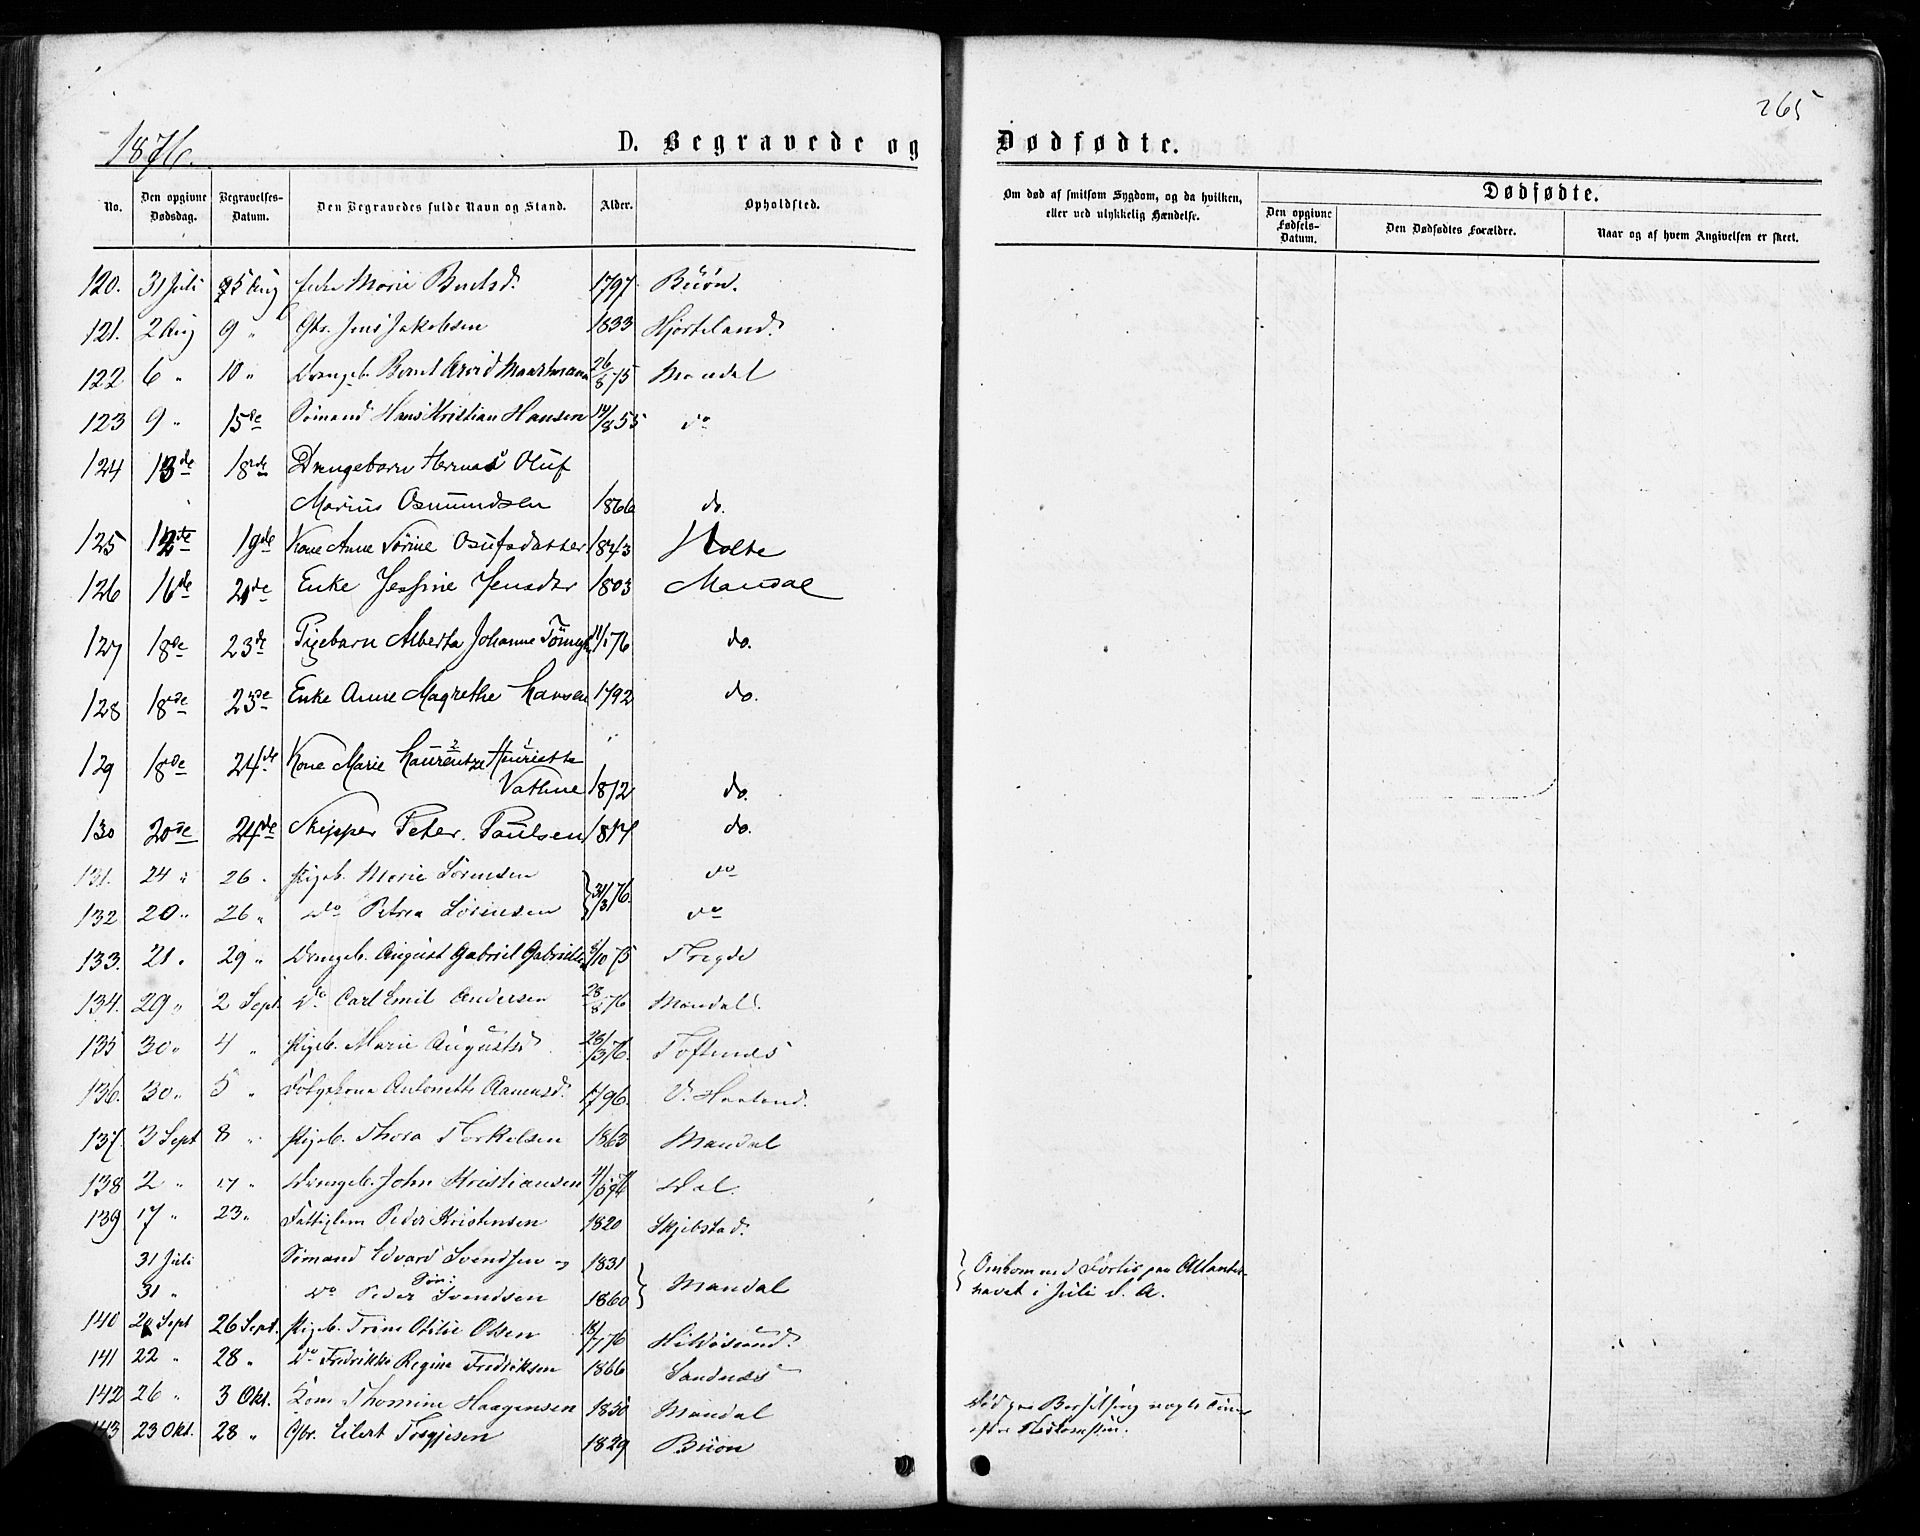 265
1876.
D. Begravede og Dødfødte.
No.
Den opgivne Dødsdag.
Begravelses-Datum.
Den Begravedes fulde Navn og Stand.
Alder.
Opholdsted.
Om død af smitsom Sygdom, og da hvilken, eller ved ulykkelig Hændelse.
Dødfødte.
Den opgivne Fødsels-Datum.
Den Dødfødtes Forældre.
Naar og af hvem Angivelsen er skeet.
120. 31 Juli 5 Aug Enke Marie Berntsd. 1797 Buøn.
121. 2 Aug 9 " Gbr. Jens Jakobsen 1833 Hjorteland.
122 6 " 10 " Drengeb. Bernt Arvid 26/8 75 Mandal
123 9 " 15de Sømand Hans Kristian Hansen 14/8 55 do
124 13de 18de Drengebarn Oluf
Marius Osmundsen 1866 do.
125 12te 19de Kone Anne Sørine 1843 Holte
126 16de 21de Enke Jensdtr 1803 Mandal
127 18de 23de Pigebarn Alberta Johanne 11/1 76 do.
128 18de 23de Enke Anne Magrethe Larsen 1792 do.
129 18de 24de Kone Marie Laurentze Henriette
Vathne 1812 do.
130 20de 24de Skipper Peter Paulsen 1814 do.
131. 24 " 26 " Pigeb. Marie Sørensen do
132 20 " 26 " do Petrea Sørensen 31/3 76. do
133. 21 " 29 " Drengeb. August Gabriel Gabrielsen /10 75 Tregde
134. 29 " 2 Sept do Carl Emil Andersen 28/8 76 Mandal.
135 30 " 4 " Pigeb. Marie Augustsd. 28/3 76. Toftenes
136. 30 " 5 " Antonette 1796. V. Haaland.
137. 3 Sept 8 " Pigeb. Thora Torkelsen 1863 Mandal
138 2 " 17 " Drengeb. John Kristiansen Dal.
139 17 " 23 " Fattiglem Peder Kristensen 1820 Skjebstad.
31 Juli Sømand Edvard Svendsen og 1831
31 " do Søn: Peder Svendsen 1860 Mandal Omkom med Fortis paa Atlanter-
havet i Juli d. A.
140 20 Sept 26 Sept. Pigeb. Trine Otilie Olsen 18/7 76 Hilløsund.
141 22 " 28 " do Fredrikke Regine Fredriksen 1866 Sandnæs
142 26 " 3 Okt. Kone Thomine Haagensen 1850 Mandal Død paa Barselseng nogle Timer
efter Nedkomsten.
143 23 Okt. 28 " Gbr. Eilert Torgjesen 1829 Buøn